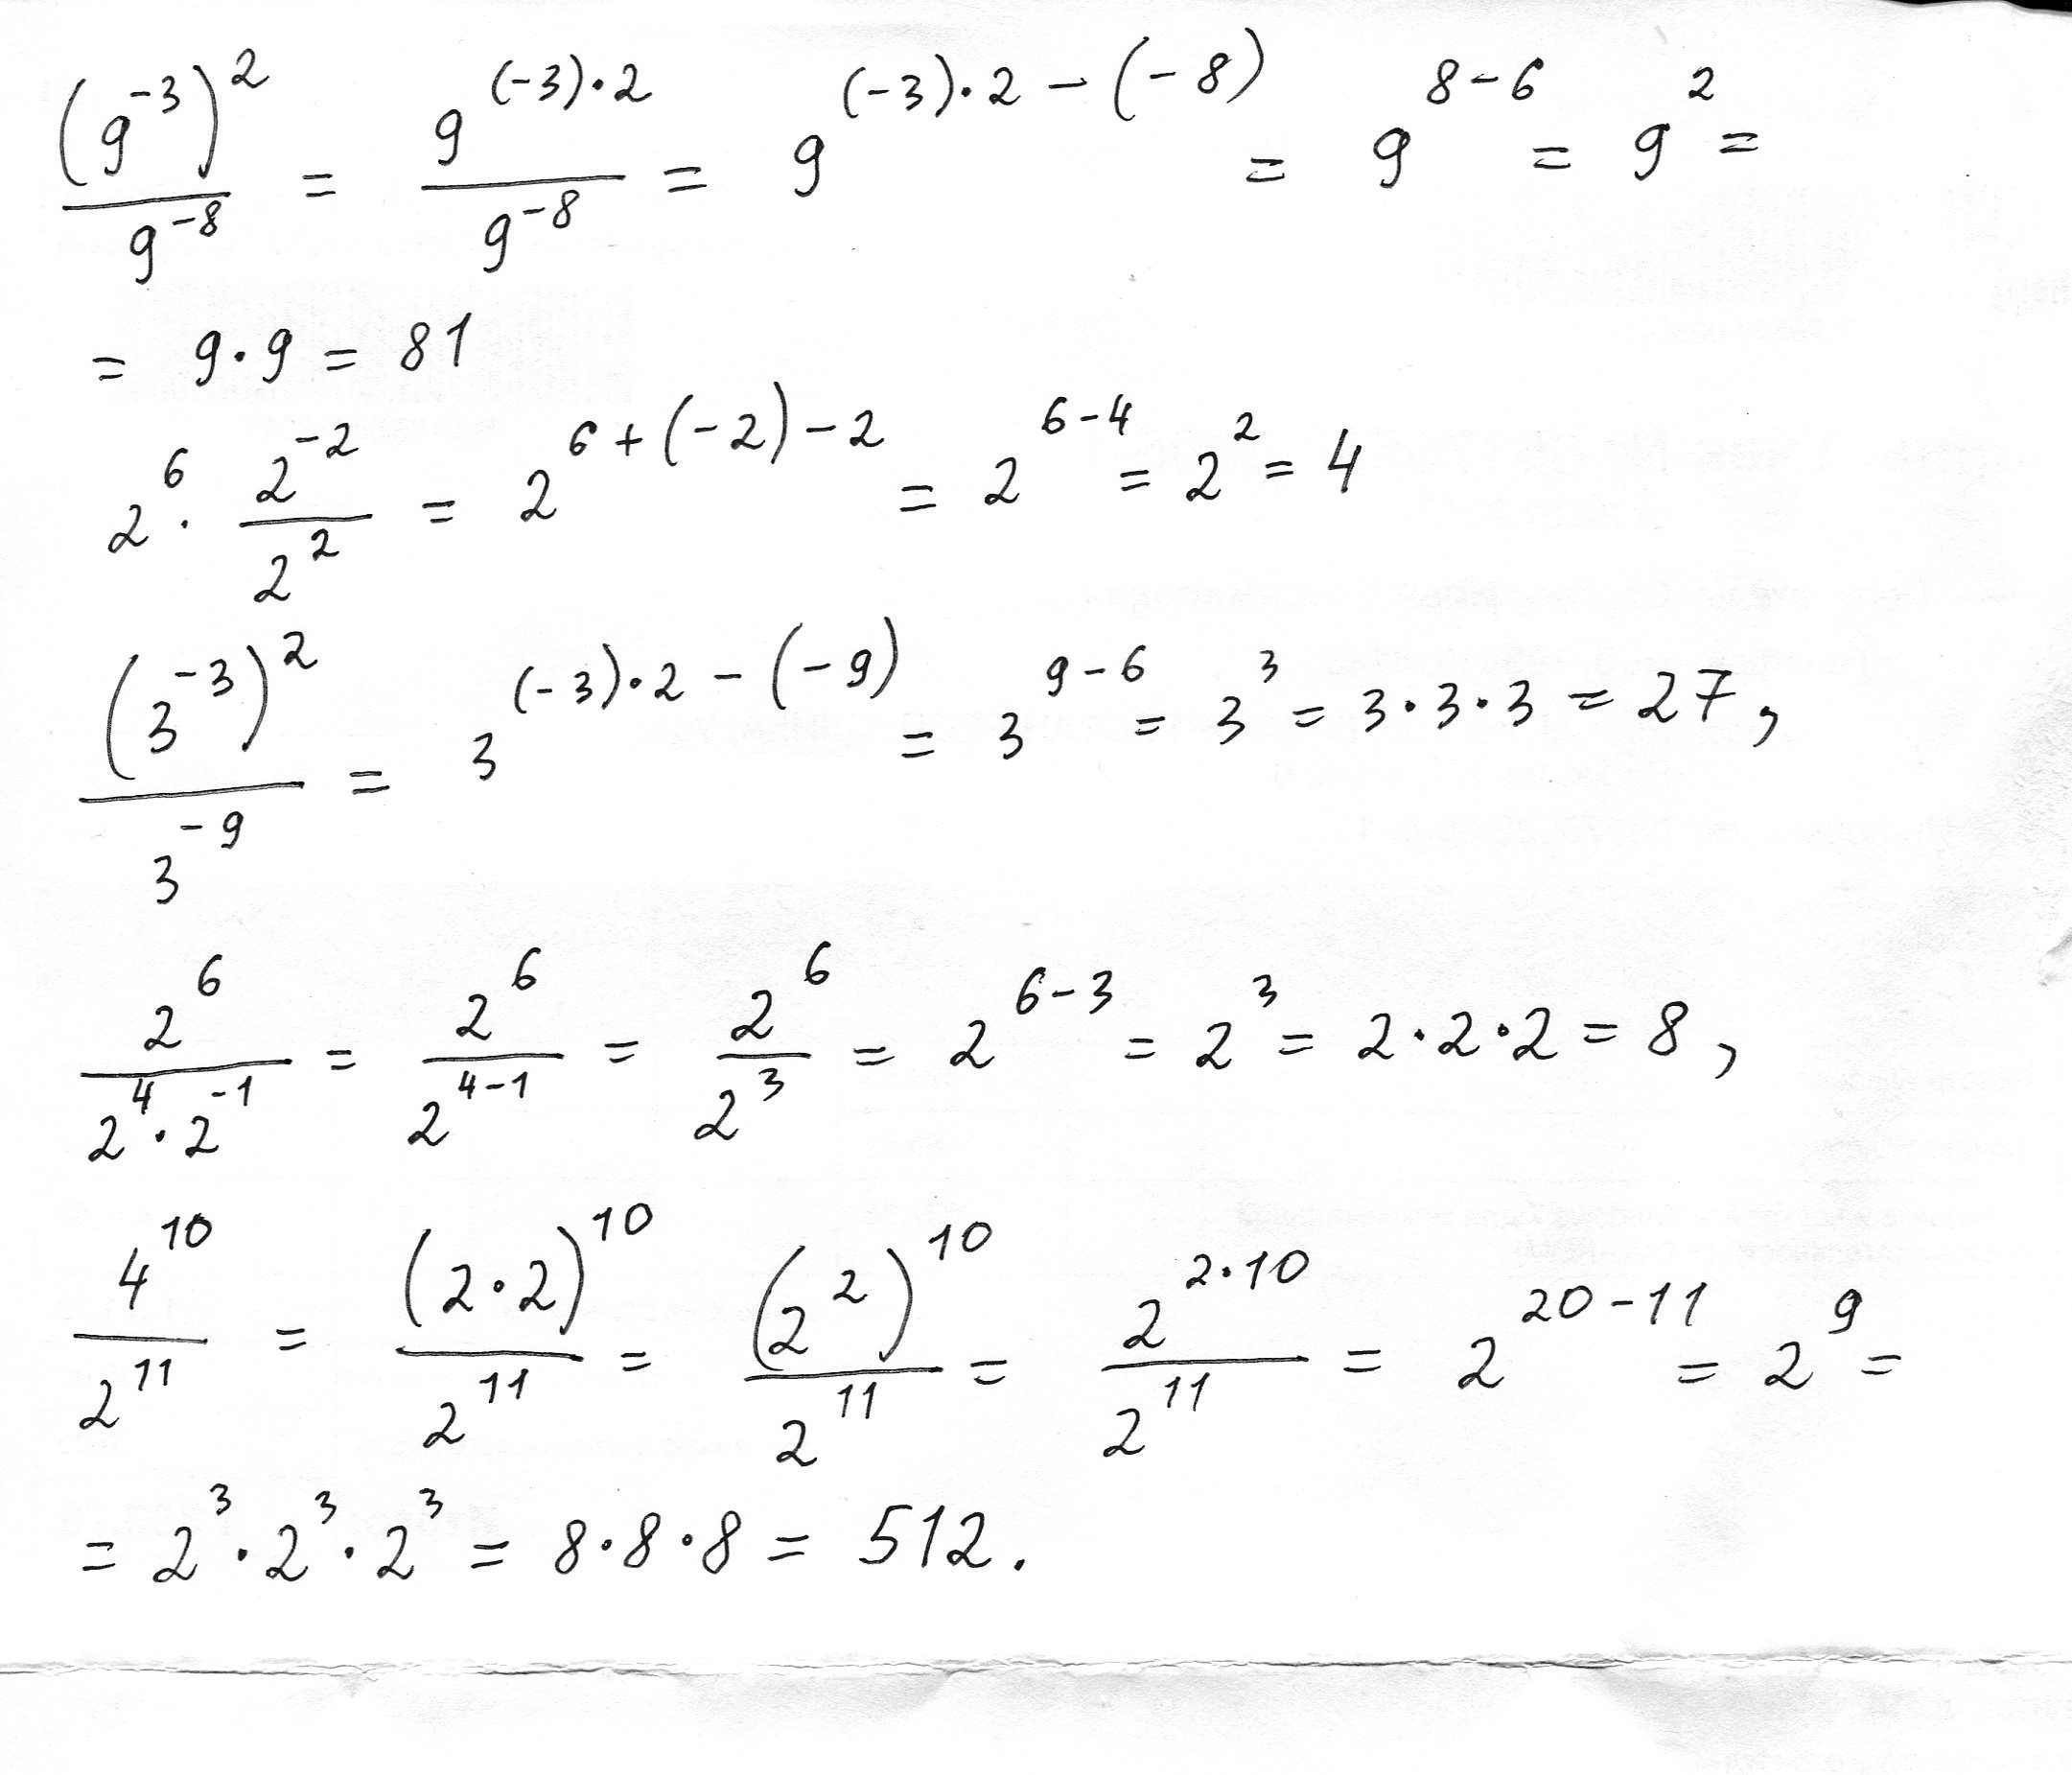 (9^{-3})^2 / 9^{-8} = 9^{(-3)·2} / 9^{-8} = 9^{(-3)·2-(-8)} = 9^{8-6} = 9^2 =
= 9·9 = 81
2^6 · 2^{-2} / 2^2 = 2^{6+(-2)-2} = 2^{6-4} = 2^2 = 4
(3^{-3})^2 / 3^{-9} = 3^{(-3)·2-(-9)} = 3^{9-6} = 3^3 = 3·3·3 = 27,
2^6 / 2^4·2^{-1} = 2^6 / 2^{4-1} = 2^6 / 2^3 = 2^{6-3} = 2^3 = 2·2·2 = 8,
4^{10} / 2^{11} = (2·2)^{10} / 2^{11} = (2^2)^{10} / 2^{11} = 2^{2·10} / 2^{11} = 2^{20-11} = 2^9 =
= 2^3·2^3·2^3 = 8·8·8 = 512.